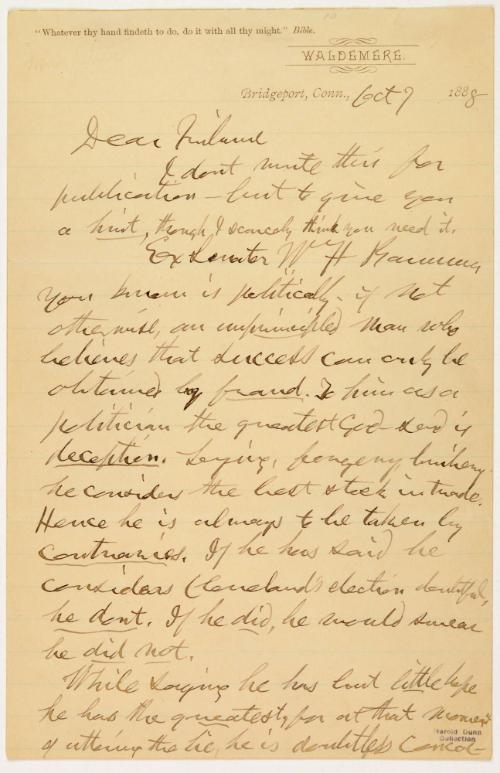 "Whatever thy hand findeth to do, do it with all thy might." Bible.
WALDEMERE.
Bridgeport, Conn., Oct 7 1888
Dear Friend
I dont write this for
publication — but to give you
a hint, though I scarcely think you need it.
Ex Senator Wm H Barnum
you know is politically, if not
otherwise, an unprincipled man who
believes that success can only be
obtained by fraud. To him as a
politician the greatest God-send is
deception. Lying, forgery bribery
he considers the best stock in trade.
Hence he is always to be taken by
contraries. If he has said he
considers Cleveland's election doubtful,
he dont. If he did, he would swear
he did not.
While saying he has but little hope
he has the greatest, for at that moment
of uttering the lie, he is doubtless
Harold Dunn
Collection